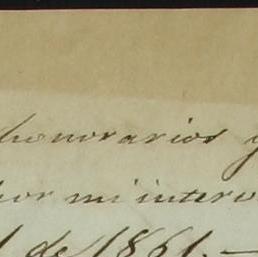 honorarios y
por mi interv
de 1861.